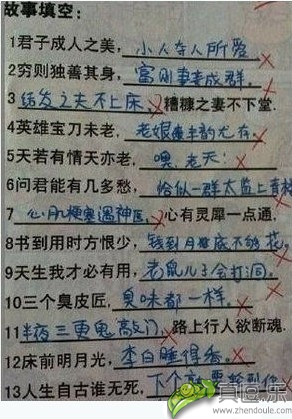 故事填空：
1君子成人之美，小人夺人所爱
2穷则独善其身，富则妻妾成群。
3结发之夫不上床，糟糠之妻不下堂.
4英雄宝刀未老，老娘 韵尤存
5天若有情天亦老，嘿，老天：
6问君能有几多愁，恰似一群太监上青楼
7心肌梗塞遇神医，心有灵犀一点通.
8书到用时方恨少，钱到月底不够花。
9天生我才必有用，老鼠儿子会打洞。
10三个臭皮匠，臭味都一样。
11半夜三更鬼敲门，路上行人欲断魂.
12床前明月光，李白睡得 。
13人生自古谁无死，下个 轮到你
真图乐
www.zhendoule.com